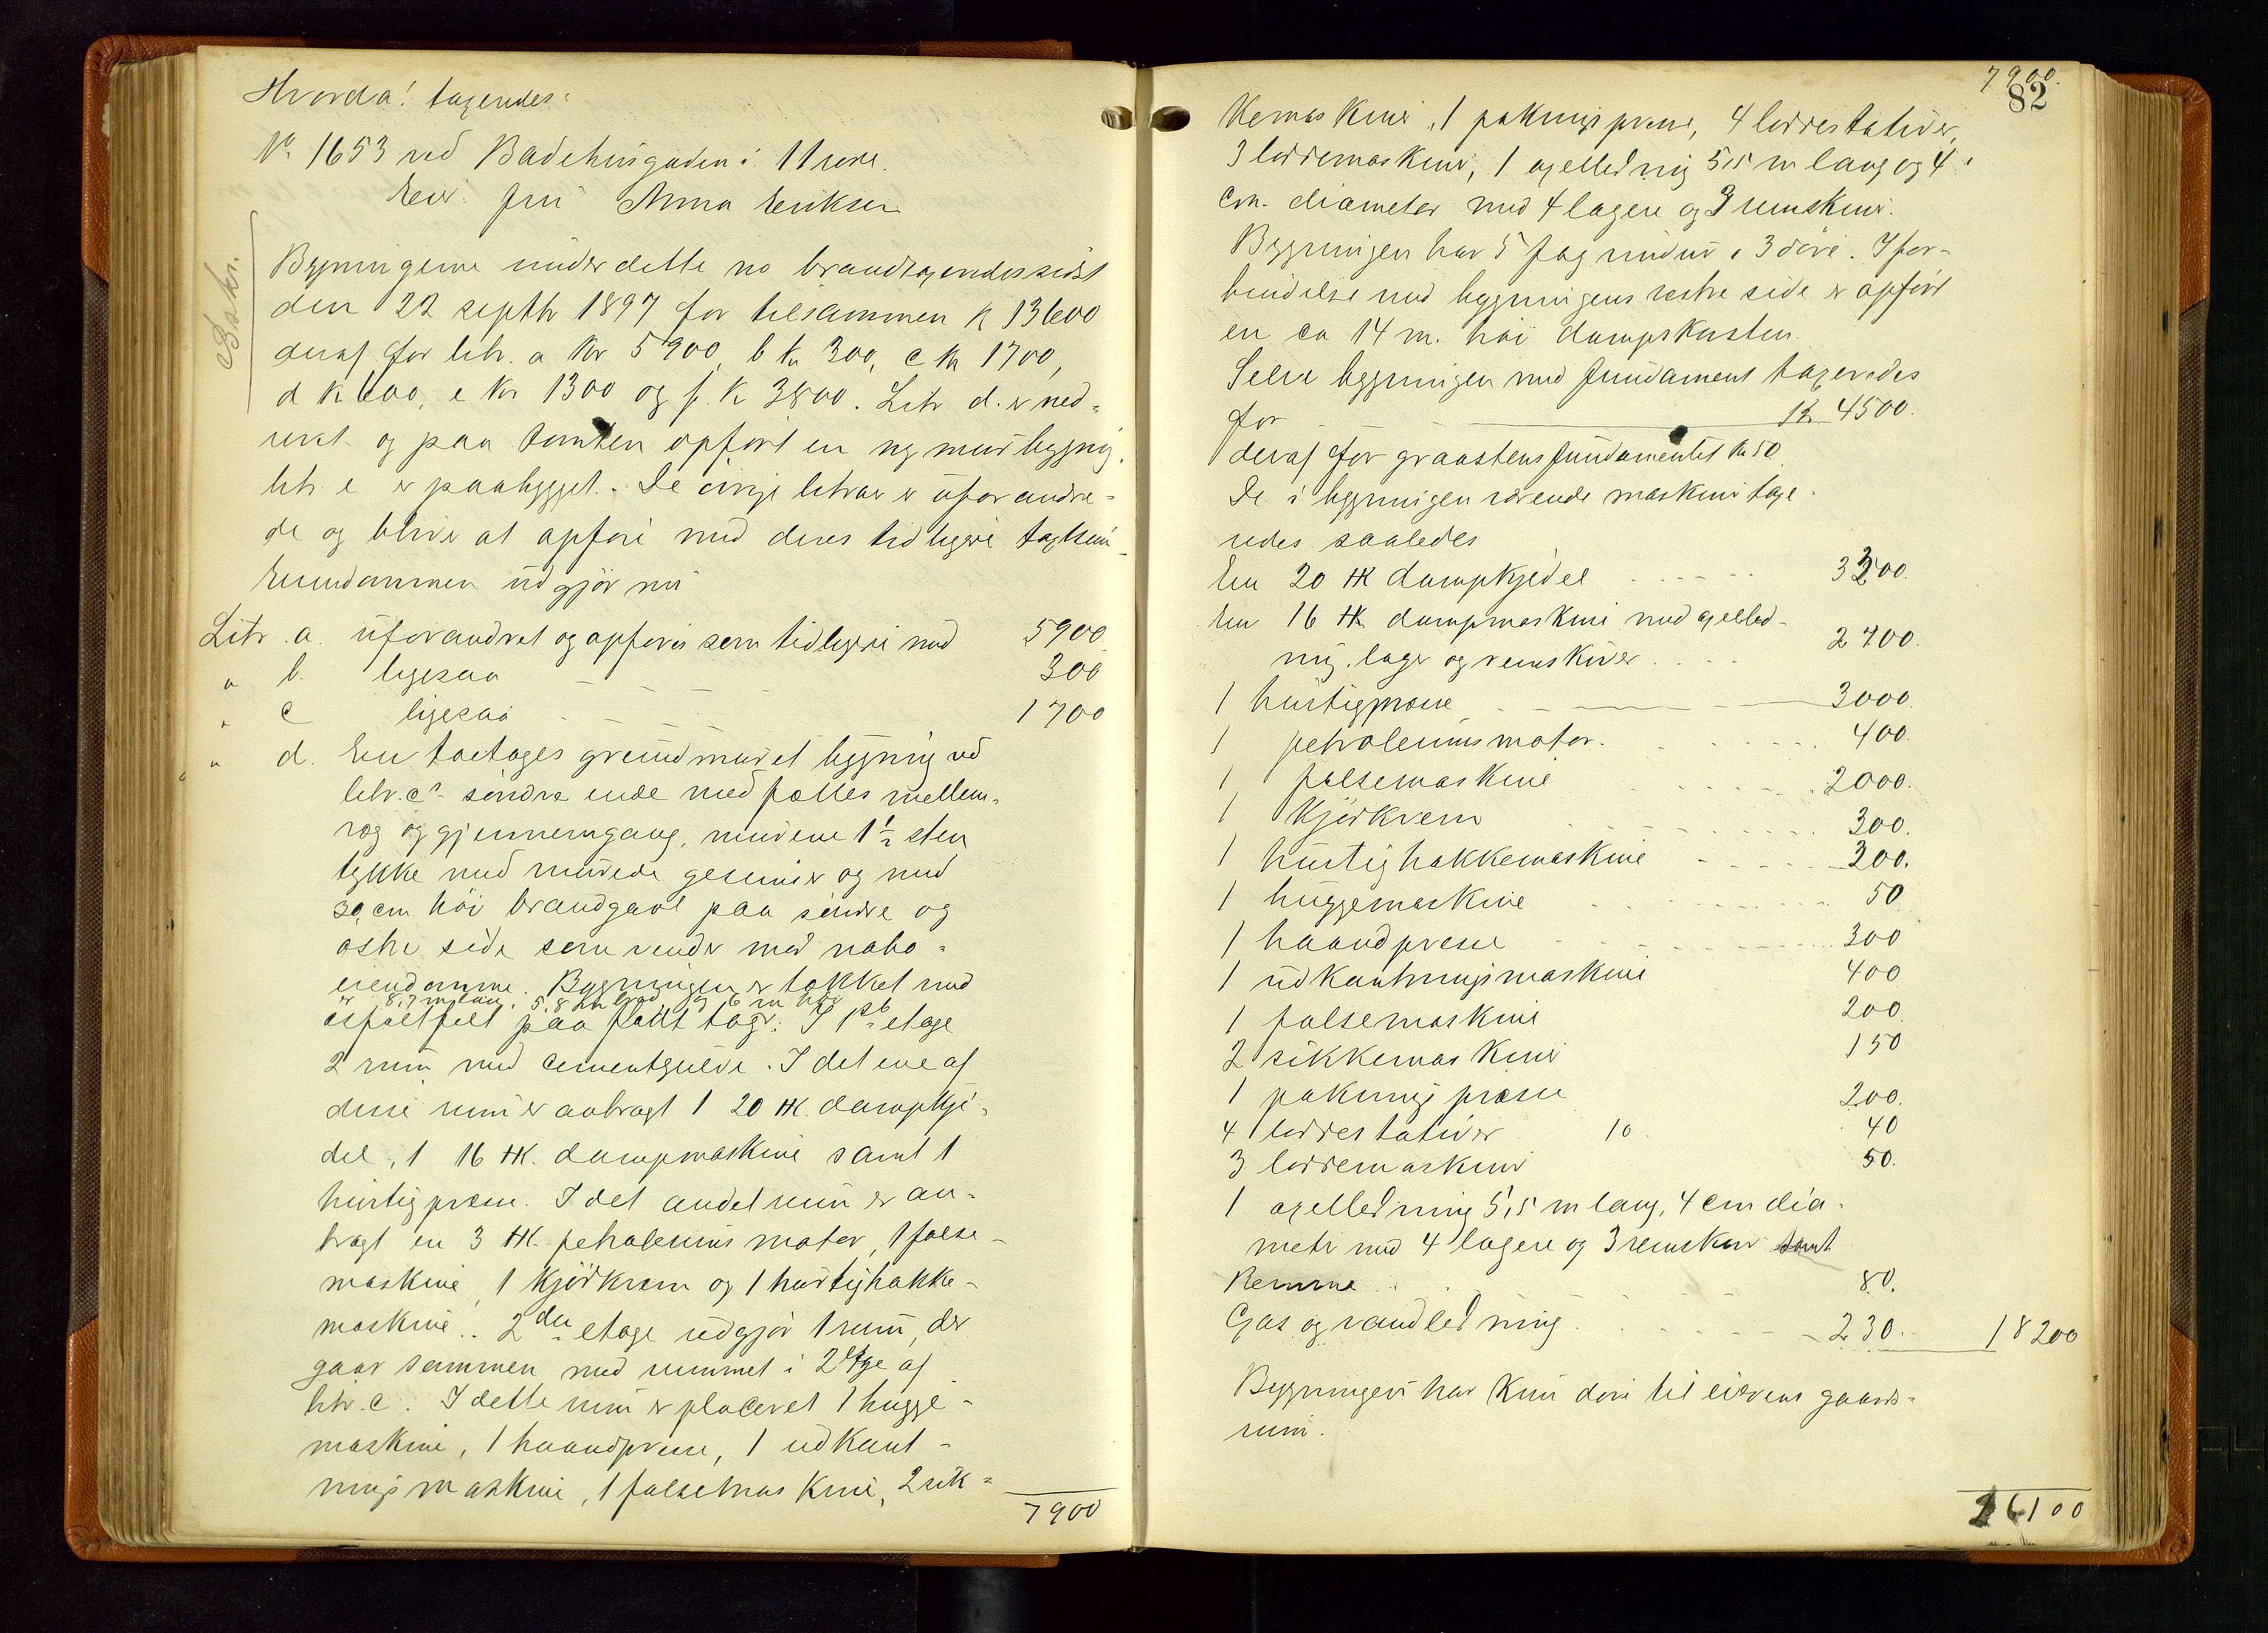 Hvorda! taxeredes:
No 1653 ved Badehusgaden i 11 rode.
Eier: Fru Anna Eriksen
Eskr.
Bygningerne under dette no brandtaxeredes sidst
den 22 septbr 1897 for tilsammen k 13600
deraf for litr. a kr 5900, b kr 300, c kr 1700,
d k 600, e kr 1300 og f. k 3800. Litr d. er ned-
revet og paa tomten opført en ny murbygnig.
litr. e er paabygget. De övrige litraer er uforandre-
de og bliver at opføre med deres tidligere takster.
Eiendommen udgjör nu
Litr. a. uforandret og opføres som tidligere med 5900.
" b. ligesaa 300
" c ligesaa 1700
" d. En toetages grundmuret bygnig ved
litr. c's söndre ende med fælles mellem-
væg og gjennemgang, murene 1 1/2 sten
tykke med murede gesimser og med
30 cm höi brandgavl paa söndre og
östre side som vender mod nabo-
eiendomme. Bygningen er tækket med
er 8,7 m lang, 5,8 m bred og 6 m höi
asfaltfilt paa fladt tag. I 1ste etage
2 rum med cementgulve. I det ene af
disse rum er anbragt 1 20 HK. dampkje-
del, 1 16 HK. dampmaskine samt 1
hurtigpresse. I det andet rum er an-
bragt en 3 HK. petroleumsmotor, 1 false-
maskine, 1 kjörkvern og 1 hurtighakke-
maskine. 2den etage udgjör 1 rum, der
gaar sammen med rummet i 2 etge af
litr. c. I dette rum er placeret 1 hugge-
maskine, 1 haandpresse, 1 udkant-
ningsmaskine, 1 falsemaskine, 2 sik-
7900
7900.
82
kemaskiner, 1 pakningspresse, 4 loddestativer,
3 loddemaskiner, 1 axelledning 5,5 m lang og 4
cm. diameter med 4 lagere og 3 remskiver.
Bygningen har 5 fag vinduer, 3 döre. I for-
bindelse med bygningens vestre side er opfört
en ca 14 m. höi dampskorsten.
Selve bygningen med fundament taxeredes
for kr 4500.
deraf for graastensfundamentet kr 50
De i bygningen værende maskiner taxe-
redes saaledes
En 20 HK dampkjedel 3300.
En 16 HK. dampmaskine med axelled-
ning, lager og remskiver 2700.
1 hurtigpresse 3000.
1 petroleumsmotor. 400.
1 falsemaskine 2000.
1 Kjörkvern 300.
1 hurtighakkemaskine 300.
1 huggemaskine 50
1 haandpresse 300
1 udkantningsmaskine 400
1 falsemaskine 200.
2 sikkemaskiner 150
1 paknings presse 200.
4 loddestativer 10 40
3 loddemaskiner 50.
1 axelledning 5,5 m lang, 4 cm dia-
metr med 4 lagere og 3 remskiver samt
Remme 80.
Gas og vandledning 230. 18200
Bygningen har kun döre til eierens gaards-
rum.
26100